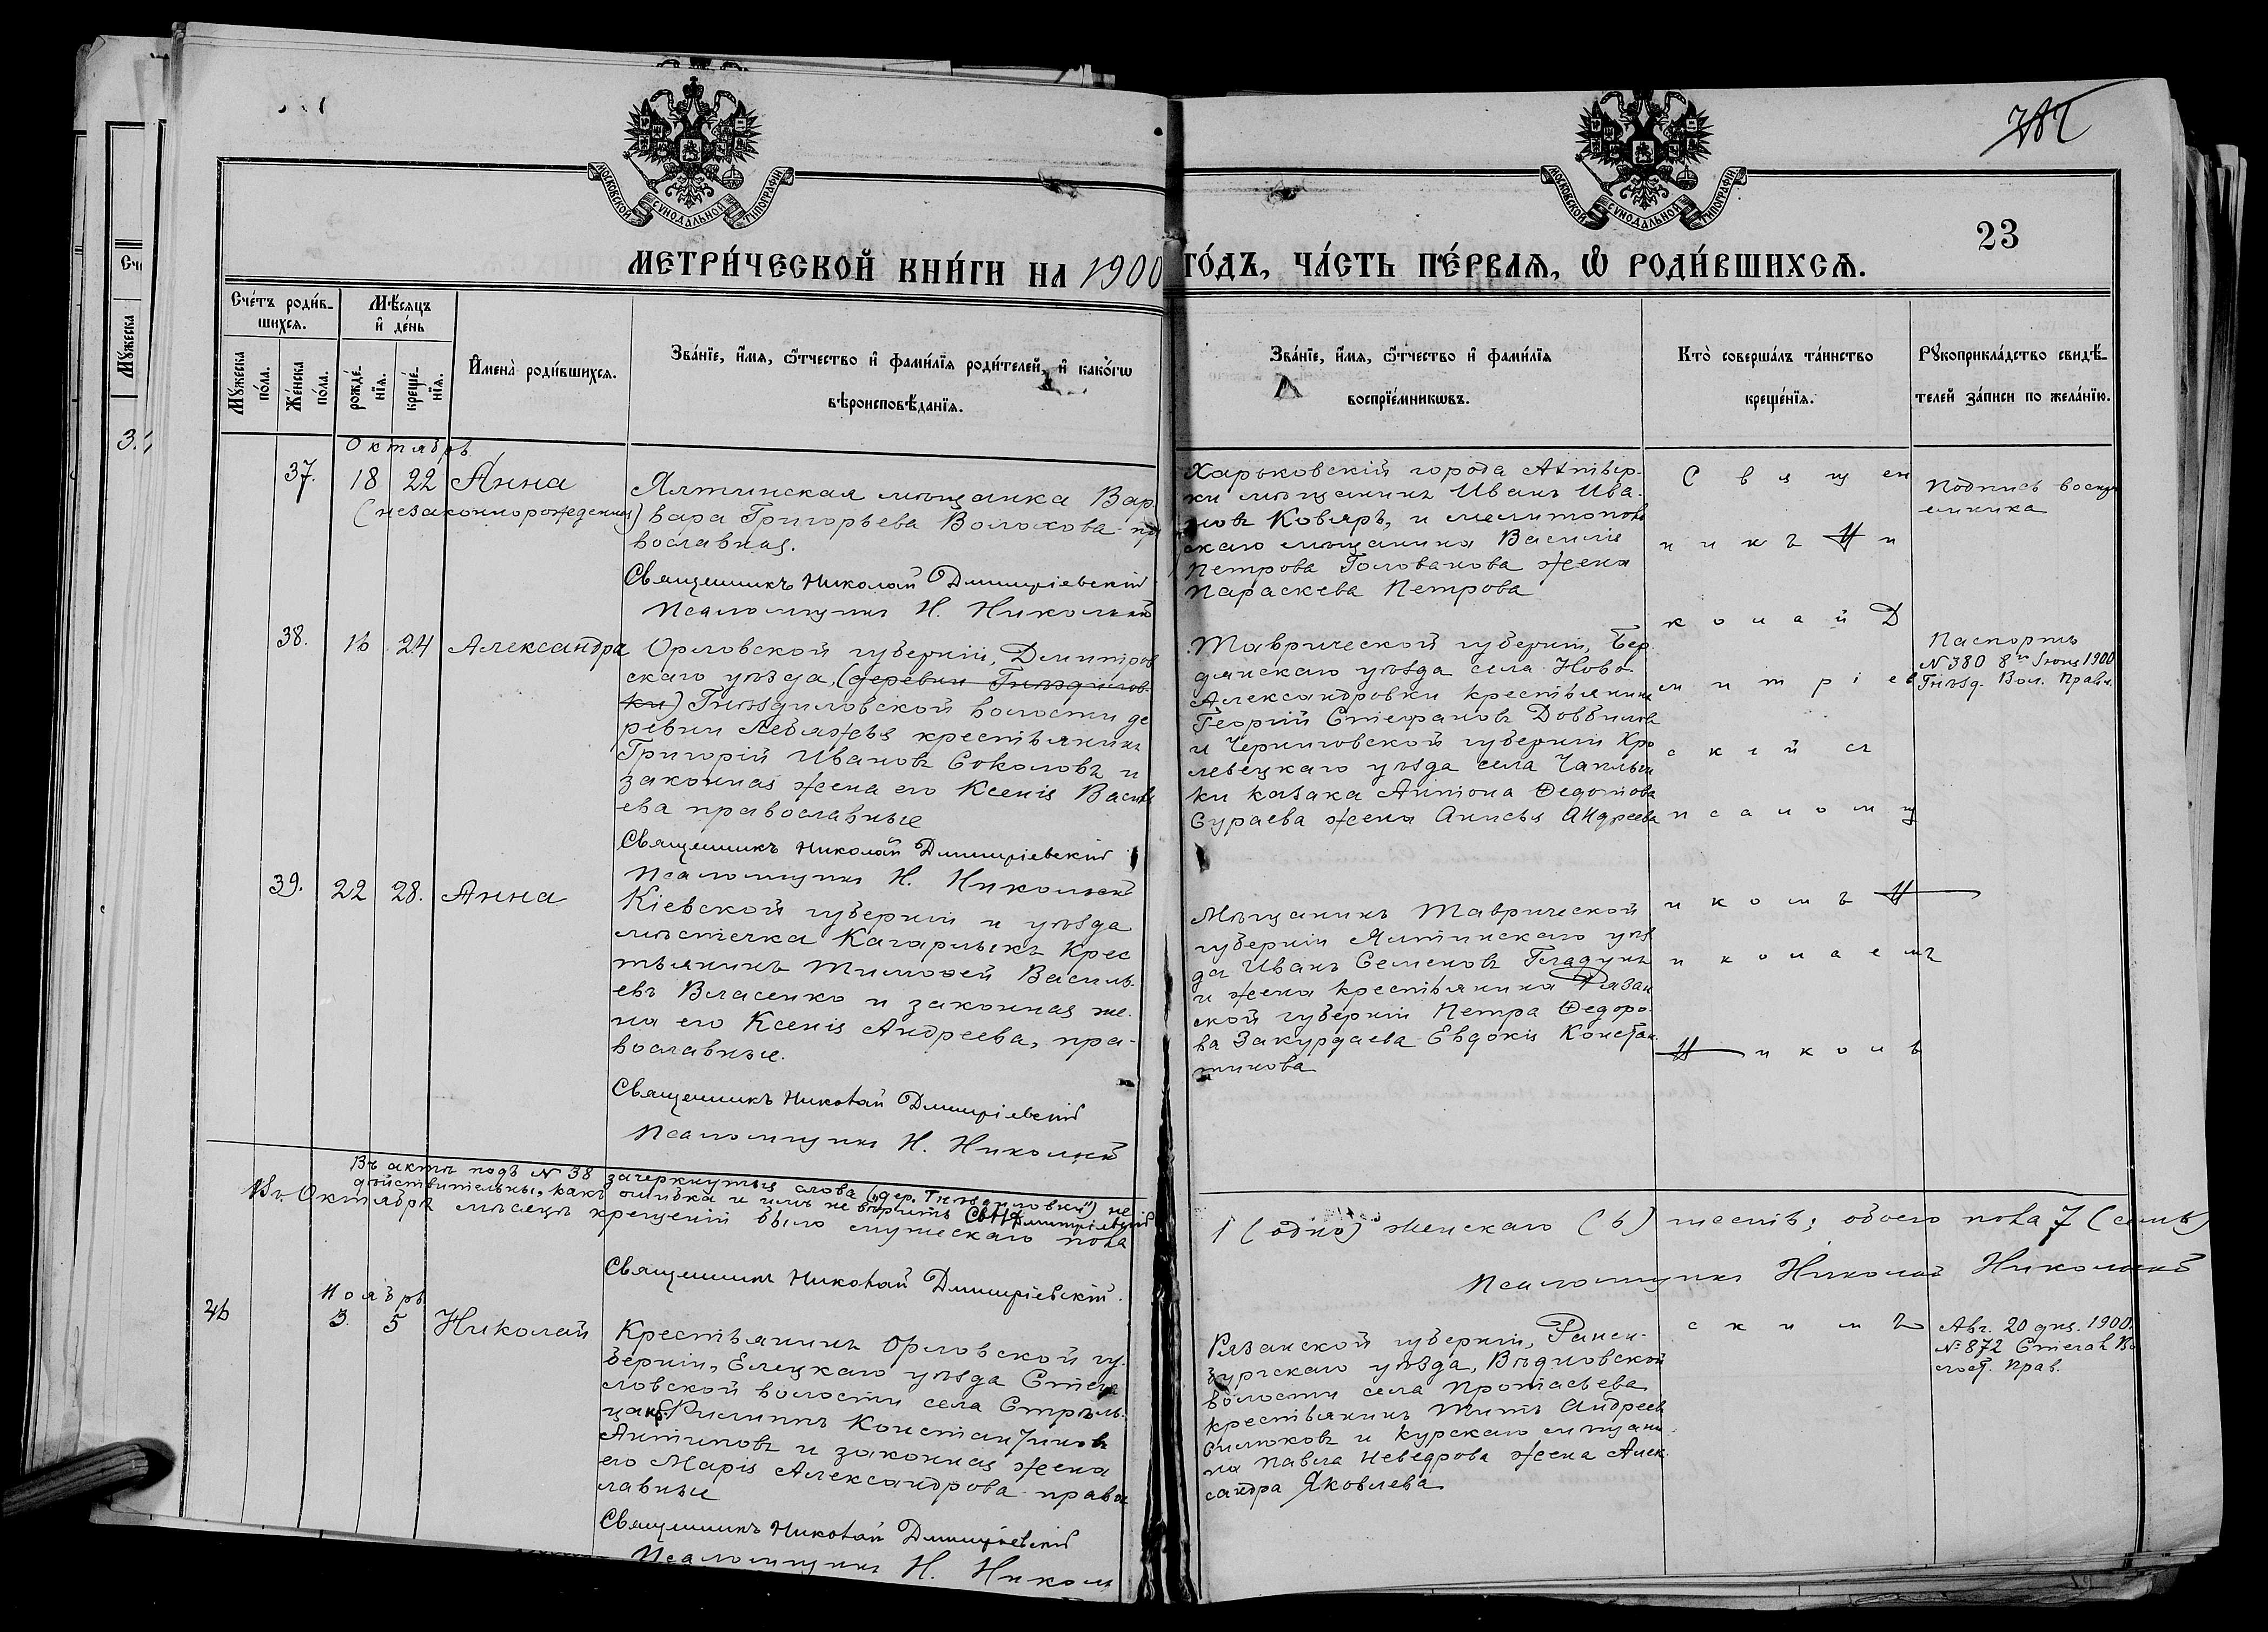 787
МОСКОВСКОЙ СѴНОДАЛЬНОЙ ТИПОГРАФІИ
МОСКОВСКОЙ СѴНОДАЛЬНОЙ ТИПОГРАФІИ
23
МЕТРИ́ЧЕСКОЙ КНИ́ГИ НА 1900 ГО́ДЪ, ЧА́СТЬ ПЕ́РВАЯ, Ѡ РОДИ́ВШИХСЯ.
Сче́тъ роди́в-
шихся.
Мꙋ́жеска
по́ла.
Же́нска
по́ла.
Мѣ́сяцъ
и҆ де́нь
рожде́-
нїя.
креще́-
нїя.
И҆мена̀ роди́вшихся.
Зва́нїе, и҆́мя, ѻ҆́тчество и҆ фами́лїя роди́телей, и҆ како́гѡ
вѣроисповѣ́данїя.
Зва́нїе, и҆́мя, ѻ҆́тчество и҆ фами́лїя
воспрїе́мникѡвъ.
Кто̀ соверша́лъ та́инство
креще́нїя.
Рꙋкоприкла́дство свидѣ́-
телей за́писи по жела́нїю.
Октябрь
37.
18
22
Анна
(незаконнорожденная)
Ялтинская мѣщанка Вар-
вара Григорьева Волохова пра
вославная.
Священникъ Николай Дмитріевскій
Псаломщикъ Н. Никольскій
Харьковскій города Ахтыр-
ки мѣщанинъ Иванъ Ива-
новъ Коваръ, и мелитополь
скаго мѣщанина Василія
Петрова Голованова жена
Параскева Петрова
Подпись воспрі
емника
38.
16
24
Александра
Орловской губерніи, Дмитров
скаго уѣзда, (деревни Гнѣздилов-
ки) Гнѣздиловской волости де
ревни Лебяжья крестьянинъ
Григорій Ивановъ Соколовъ и
законная жена его Ксенія Василь
ева православные
Священникъ Николай Дмитріевскій
Псаломщикъ Н. Никольскій
Таврической губерніи, Бер
дянскаго уѣзда села Ново-
Александровки крестьянинъ
Георгій Стефановъ Довбиловъ
и Черниговской губерніи Кро
левецкаго уѣзда села Чаплыи
ки казака Антона Ѳедотова
Сураева жена Анисья Андреева
Паспортъ
№ 380 8го Іюня 1900
Гнѣзд. Вол. Правл.
39.
22
28.
Анна
Кіевской губерніи и уѣзда
мѣстечка Кагарлыкъ Крес
тьянинъ Тимоѳей Василь-
евъ Власенко и законная же-
на его Ксенія Андреева, пра-
вославные.
Священникъ Николай Дмитріевскій
Псаломщикъ Н. Никольскій
Мѣщанинъ Таврической
губерніи Ялтинскаго уѣз
да Иванъ Семеновъ Гладунъ
и жена крестьянина Рязан
ской губерніи Петра Ѳедоро-
ва Закурдаева Евдокія Констан
тинова
С в я щ ен
н и к ъ Н и
к о л а й Д
м и т р і ев
с к і й съ
п с а л о м щ
и к о м ъ Н
и к о л а е мъ
Н и к о л ь
Въ актѣ подъ № 38 зачеркнутыя слова („дер. Гнѣздиловки") не
дѣйствительны, какъ ошибка и имъ не вѣрить Св. Н. Дмитріевскій
Въ Октябрѣ мѣсяцѣ крещеній было мужескаго пола
1 (одно) женскаго (6) шесть; обоего пола 7 (семь)
Священникъ Николай Дмитріевскій.
Псаломщикъ Николай Никольскій
Ноябрь
46
3.
5
Николай
Крестьянинъ Орловской гу-
берніи, Елецкаго уѣзда Стега
ловской волости села Стрѣль-
Константиновъ
Антиповъ и законная жена
его Марія Александрова правос
лавные
Священникъ Николай Дмитріевскій
Псаломщикъ Н. Николь
Рязанской губерніи, Ранен-
бургскаго уѣзда, Вѣдновской
волости села Протасьева
крестьянинъ Титъ Андреев
Силюковъ и Курскаго мѣщани
на Павла Неведрова жена Алек
сандра Яковлева
с к и м ъ
Авг. 20 дня. 1900
№ 872 Стегал. Во
лост. Прав.